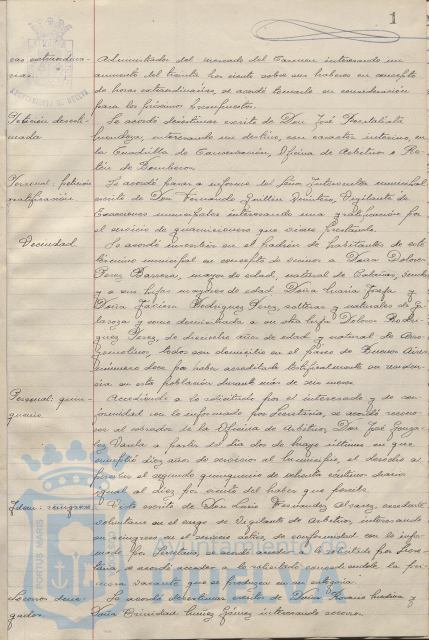 1
ras extraordina-
rias.
Administrador del mercado del Carmen interesando un
aumento del treinta por ciento sobre sus haberes en concepto
de horas extraordinarias, se acordó tomarlo en consideración
para los próximos Presupuestos.
Petición desesti-
mada
Se acordó desestimar escrito de Don José
interesando un destino, con carácter interino, en
la Cuadrilla de Conservación, Oficina de Arbitrios o Re-
tén de Bomberos.
Personal: petición
gratificación.
Se acordó pasar a informe del Señor Interventor municipal
escrito de Don Fernando Quintero, Vigilante de
Exacciones municipales interesando una gratificación por
el servicio de que viene prestando.
Vecindad
Se acordó inscribir en el padrón de habitantes de este
término municipal en concepto de vecinos a Doña Dolores
Pérez Barrosa, mayor de edad, natural de Cabañas, viuda
y a sus hijas mayores de edad Doña María Josefa y
Doña Javiera Rodríguez Pérez, solteras y naturales de
y como domiciliada a su otra hija Dolores Rodrí-
guez Pérez, de diecisiete años de edad y natural de
todos con domicilio en el paseo de Buenos Aires
número doce por haber acreditado testificalmente su residen-
cia en esta población durante más de seis meses.
Personal: quin-
quenio.
Accediendo a lo solicitado por el interesado y de con-
formidad con lo informado por Secretaría, se acordó recono-
cer al cobrador de la Oficina de Arbitrios Don José Gonzá-
lez a partir del día dos de mayo último en que
cumplió diez años de servicio al Municipio, el derecho a
percibir el segundo quinquenio de
igual al diez por ciento del haber que percibe.
Idem: reingreso.
Visto escrito de Don Lucio Fernández Álvarez, excedente
voluntario en el cargo de Vigilante de Arbitrios, interesando
su reingreso en el servicio activo, de conformidad con lo infor-
mado por Secretaría, se acordó acceder a lo solicitado
concediéndole la pri-
mera vacante que se produzca en su categoría.
Socorros dene-
gados.
Se acordó desestimar escritos de Doña Rosario Medina y
Doña Trinidad Núñez Gómez interesando socorro.
Ayuntamiento
PORTUS MARIS